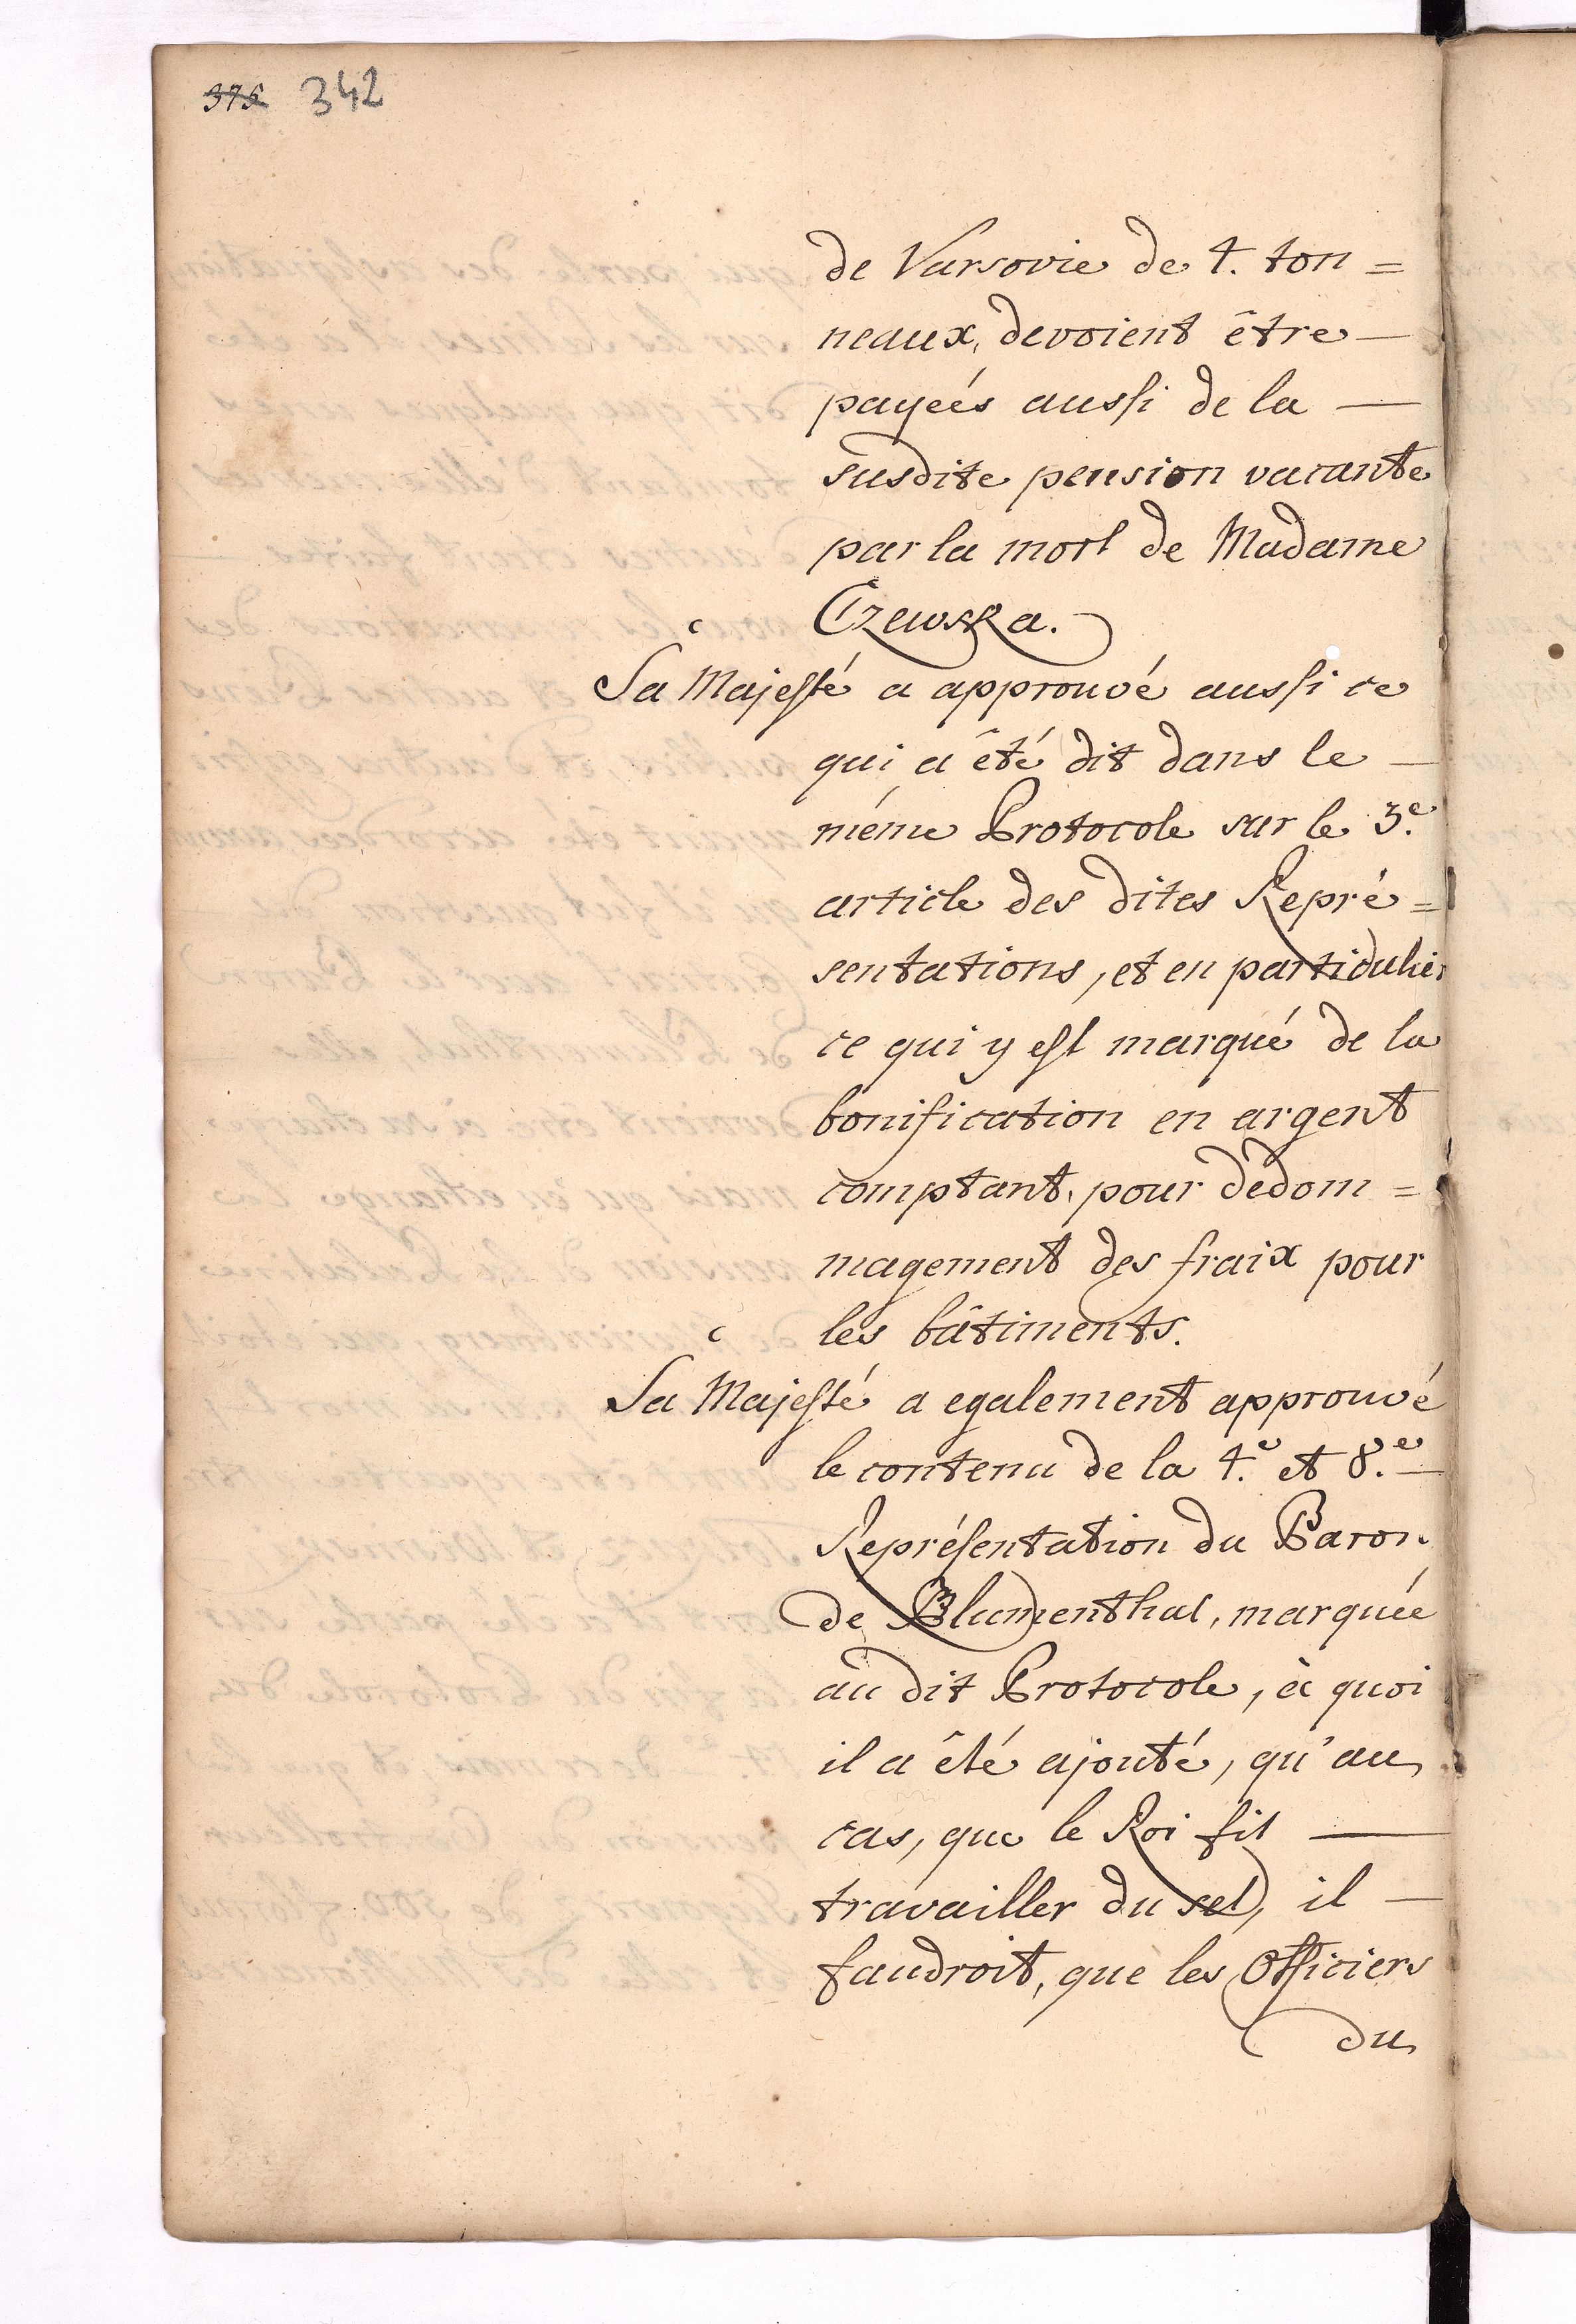 375 342
de Varsovie de 4. ton=
neaux, devoient être —
payeés aussi de la —
susdite pension vacante
par la mort de Madame
Czewska.
Sa Majesté a approuvé aussi ce
qui a été dit dans le —
méme Protocole sur le 3.e
article des dites Repré=
sentations, et en particulier
ce qui y est marqué de la
bonification en argent
comptant, pour dédom=
magement des fraix pour
les bâtiments.
Sa Majesté a egalement approuvé
le contenu de la 4.e et 8.e —
Représentation du Baron
de Blumenthal, marquée
au dit Protocole, à quoi
il a été ajouté, qu'au
cas, que le Roi fit —
travailler du sel, il —
faudroit, que les Officiers
du